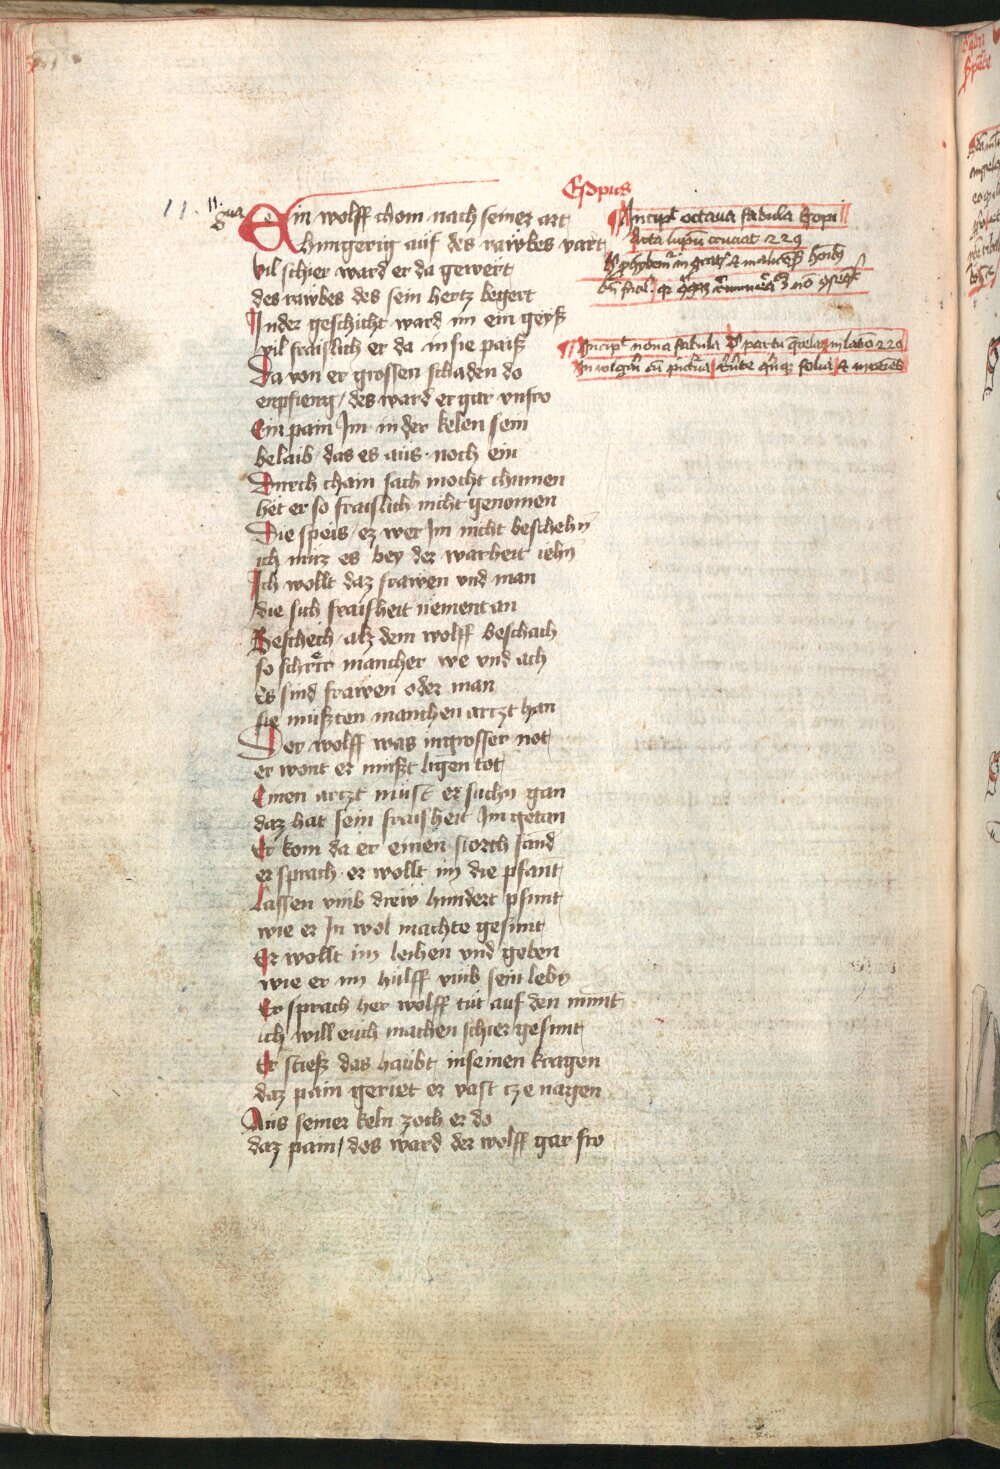 Esopus
11.
Ein wolff chom nach seiner art
hungerig auf des rawbes vart
vil schier ward er da gewert
des rawbes des sein hertz begert
In der geschicht ward im ein geyß
vil fraislich er da in sie paiß
Da von er grossen schaden do
enpfieng / des ward er gar vnfro
Ein pain Im in der kelen sein
belaib / das es aus noch ein
Durch chain sach mocht chumen
het er so fraislich nicht genomen
Die speis / ez wer Im nicht beschehn
ich muz es bey der warheit iehn
Ich wollt daz frawen vnd man
die sich fraisheit nement an
Beschech alz dem wolff beschach
so schrir mancher we vnd ach
Es sind frawen oder man
sie mußten manchen artzt han
Der wolff was in grosser not
er wont er mußt ligen tot
Einen artzt must er suchn gan
daz hat sein fraisheit Im getan
Er kom da er einen storch fand
er sprach er wollt im die pfant
Lassen vmb drew hundert pfunt
wie er In wol machte gesunt
Er wollt im leihen vnd geben
wie er im hulff vmb sein lebn
Er sprach her wolff tut auf den munt
ich will euch machen schier gesunt
Er stieß das haubt in seinen kragen
daz pain geriet er vast cze nagen
Aus seiner keln zoch er do
daz pain / des ward der wolff gar fro
Incipit octaua fabula Esopi
Arta lupum cruciat 229
Incipit nona fabula